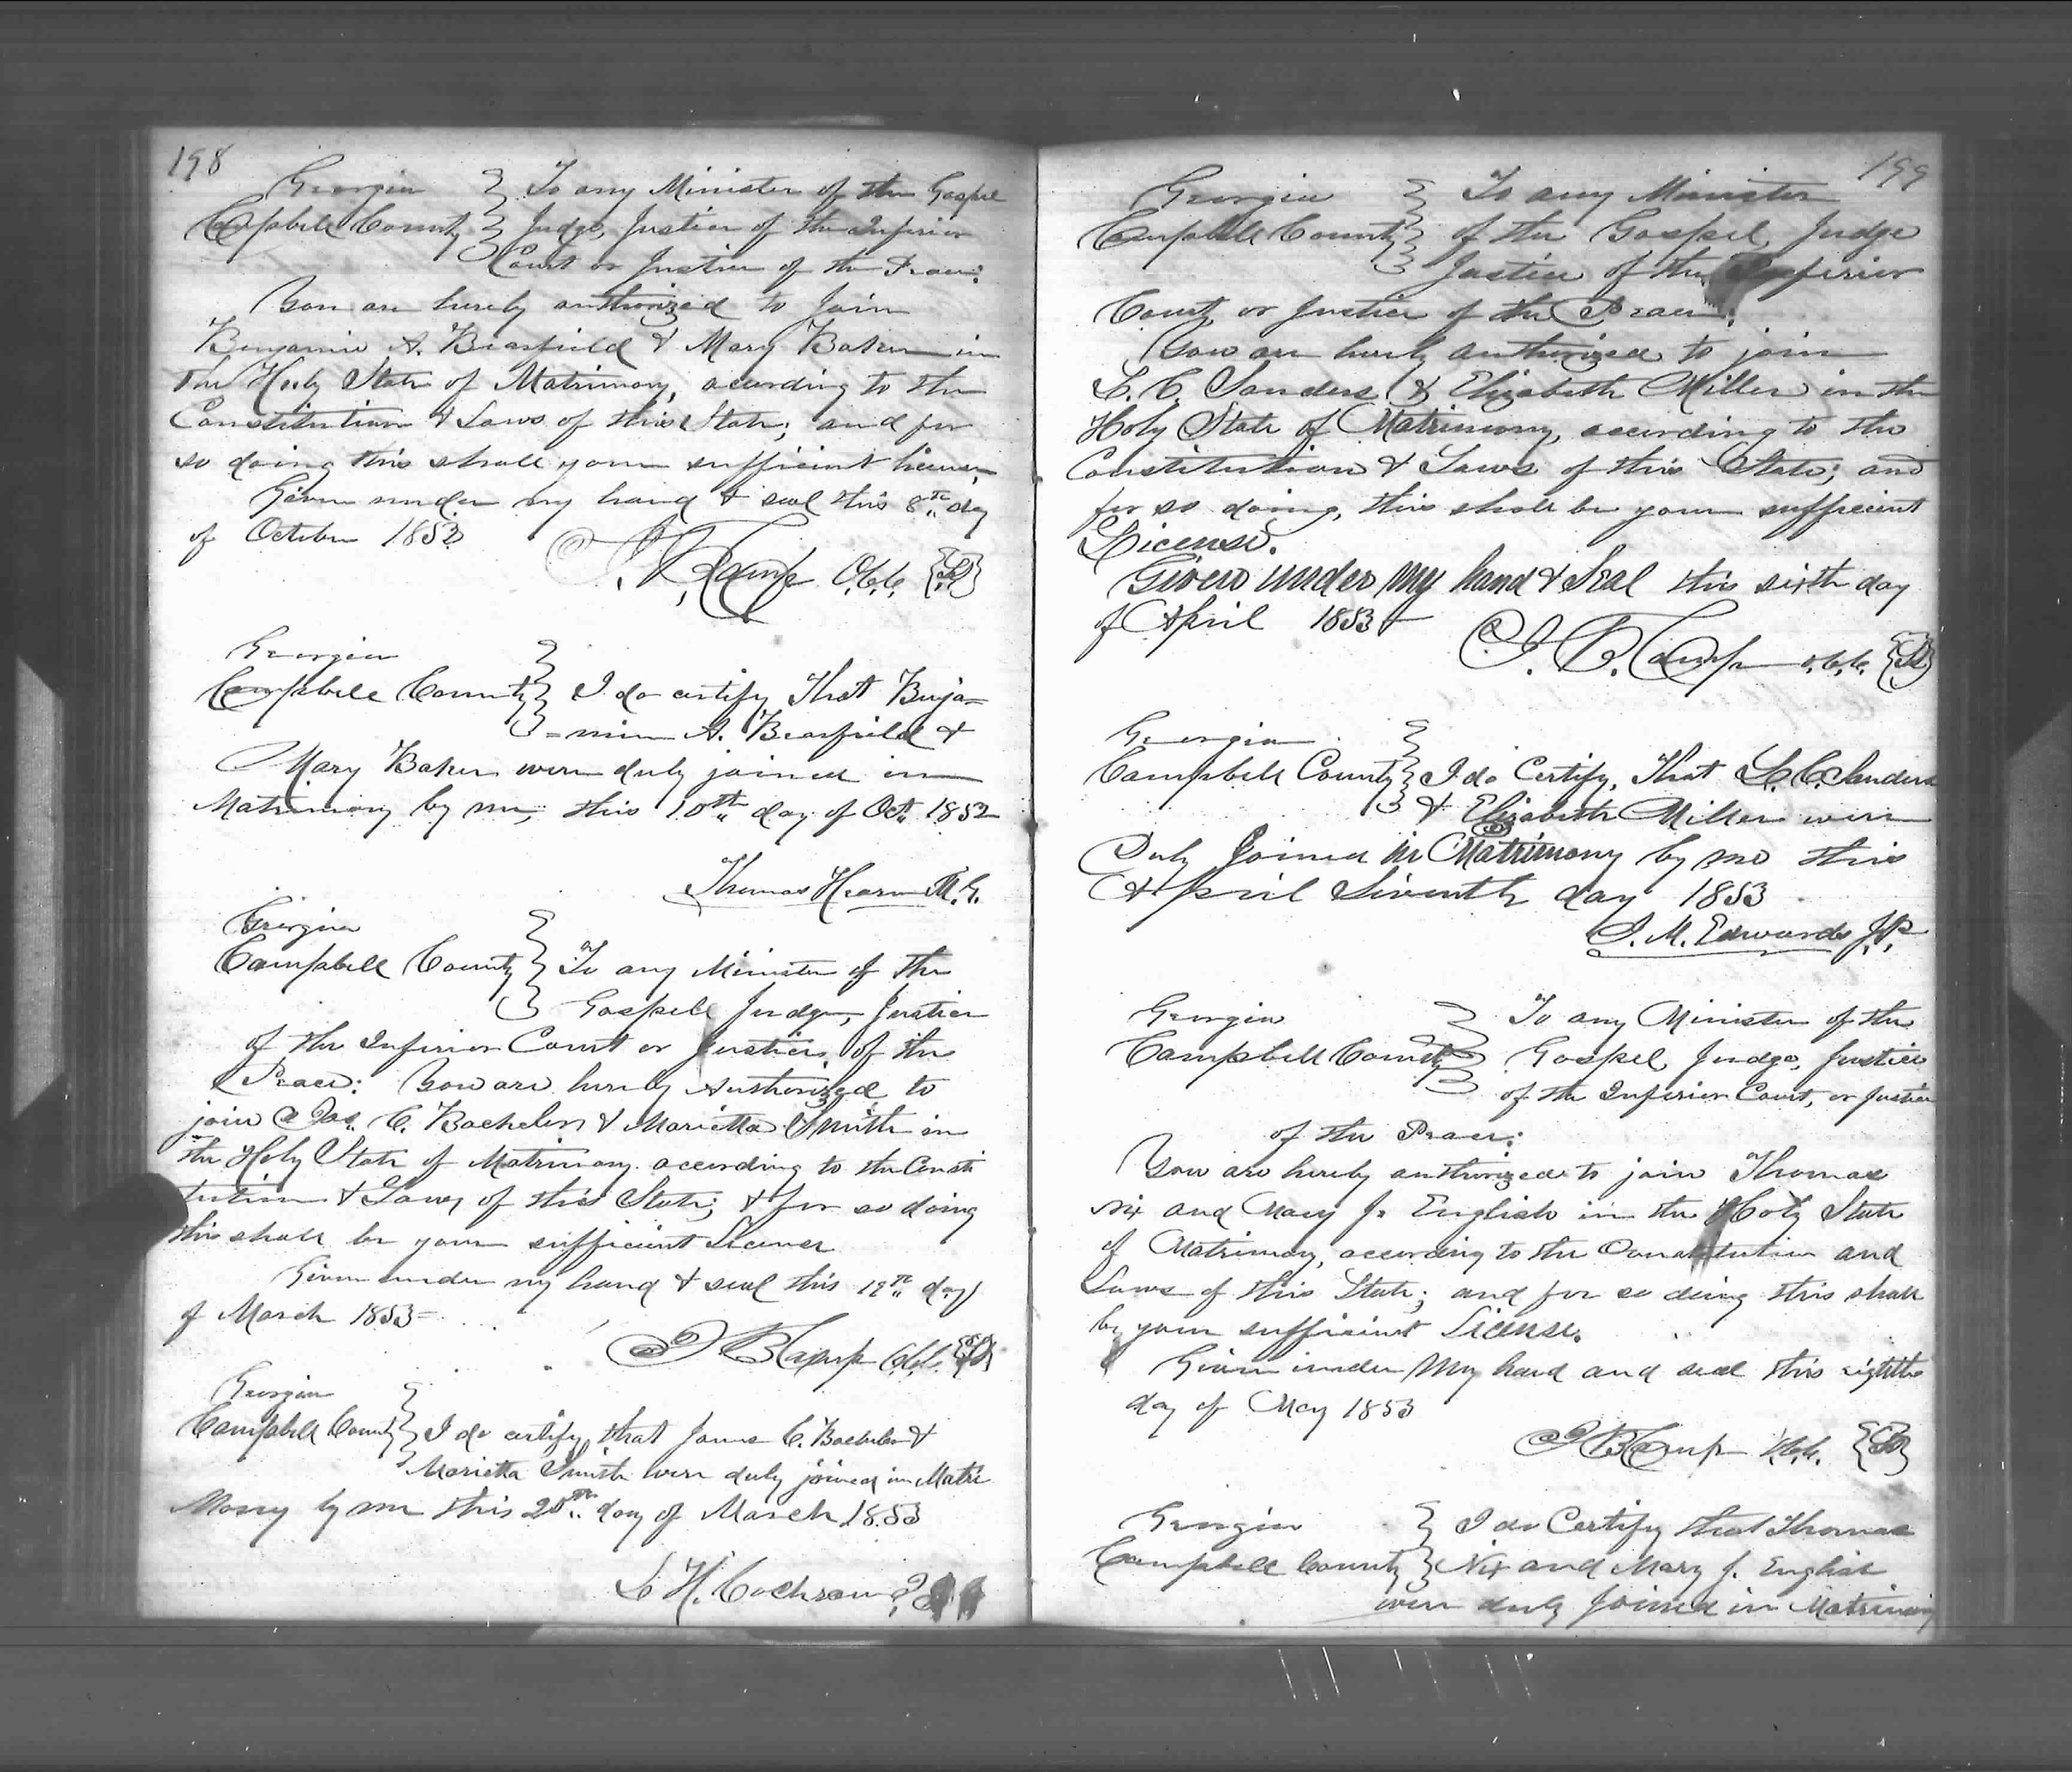 198
Georgia } To any Minister of the Gospel
Campbell County } Judge, Justice of the Inferior
Court or Justice of the Peace:
You are hereby authorized to Join
Benjamin A. Bearfield & Mary Baker in
the Holy State of Matrimony, according to the
Constitution & Laws of this State; and for
so doing this shall your sufficient license
Given under my hand & seal this 8th day
of October 1852
J. B. Camp C.C.C. {LS}
Georgia
Campbell County } I do certify That Benja=
=min A. Bearfield &
Mary Baker were duly joined in
Matrimony by me, this 10th day of Oct 1852
Thomas Hearn M.G.
Georgia
Campbell County } To any Minister of the
Gospel Judge, Justice
of the Inferior Court or Justice of the
Peace: You are hereby Authorized to
join Jas. C. Bachelor & Marietta Smith in
the Holy State of Matrimony according to the Consti
tution & Laws of this State; & for so doing
this shall be your sufficient License
Given under my hand & seal this 19th day
of March 1853=
J B Camp C.C.C. {LS}
Georgia
Campbell County } I do certify that James C. Bachelor &
Marietta Smith were duly joined in Matri
mony by me this 20th day of March 1853
L H. Cochran J
199
Georgia } To any Minister
Campbell County } of the Gospel, Judge
Justice of the Inferior
Court, or Justice of the Peace:
You are hereby authorized to join
L. C. Sanders & Elizabeth Miller in the
Holy State of Matrimony, according to the
Constitution & Laws of this State; and
for so doing, this shall be your sufficient
License.
Given under my hand & Seal this sixth day
of April 1853
J. B. Camp C.C.C. {LS}
Georgia
Campbell County } I do Certify, That L. C. Sanders
& Elizabeth Miller were
Duly Joined in Matrimony by me this
April Seventh day 1853
J. M. Edwards J.P.
Georgia } To any Minister of the
Campbell County } Gospel, Judge, Justice
of the Inferior Court, or Justice
of the Peace:
You are hereby authorized to join Thomas
Nix and Mary J. English in the Holy State
of Matrimony, according to the Constitution and
Laws of this State; and for so doing this shall
be your sufficient License.
Given under My hand and seal this eighth
day of May 1853
J B Camp C.C.C. {LS}
Georgia } I do Certify that Thomas
Campbell County } Nix and Mary J. English
were duly Joined in Matrimony